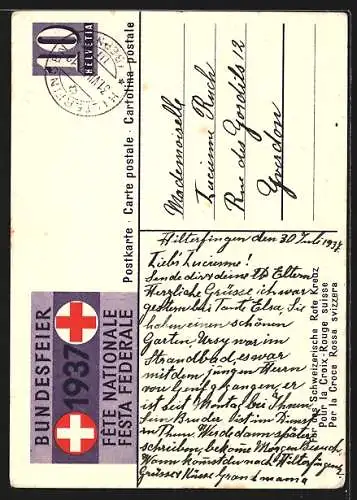 10
HELVETIA
HILTERFINGEN
Postkarte · Carte postale · Cartolina postale
Mademoiselle
Lucienne Ruch
Rue des Gordils 12
Yverdon
BUNDESFEIER
1937
FÊTE NATIONALE
FESTA FEDERALE
Hilterfingen den 30 Juli 1937
Lieb's Lucienne!
Sende dir & deine Eltern
Herzliche Grüsse ich war
gestern bei Tante Elsa, Sie
haben einen schönen
Garten, Ursy war im
Strandbad, es war
mit dem jungen Herrn
von Genf gegangen, er
ist seit Montag bei Ihnen
Sein Bruder ist im Dienst
in Thun. Werde dann später
schreiben, bekome Morgen Besuch.
Wann kommst du nach Hilterfingen
Grüsse & Küsse Grandmama
Für das Schweizerische Rote Kreuz
Pour la Croix-Rouge suisse
Per la Croce Rossa svizzera